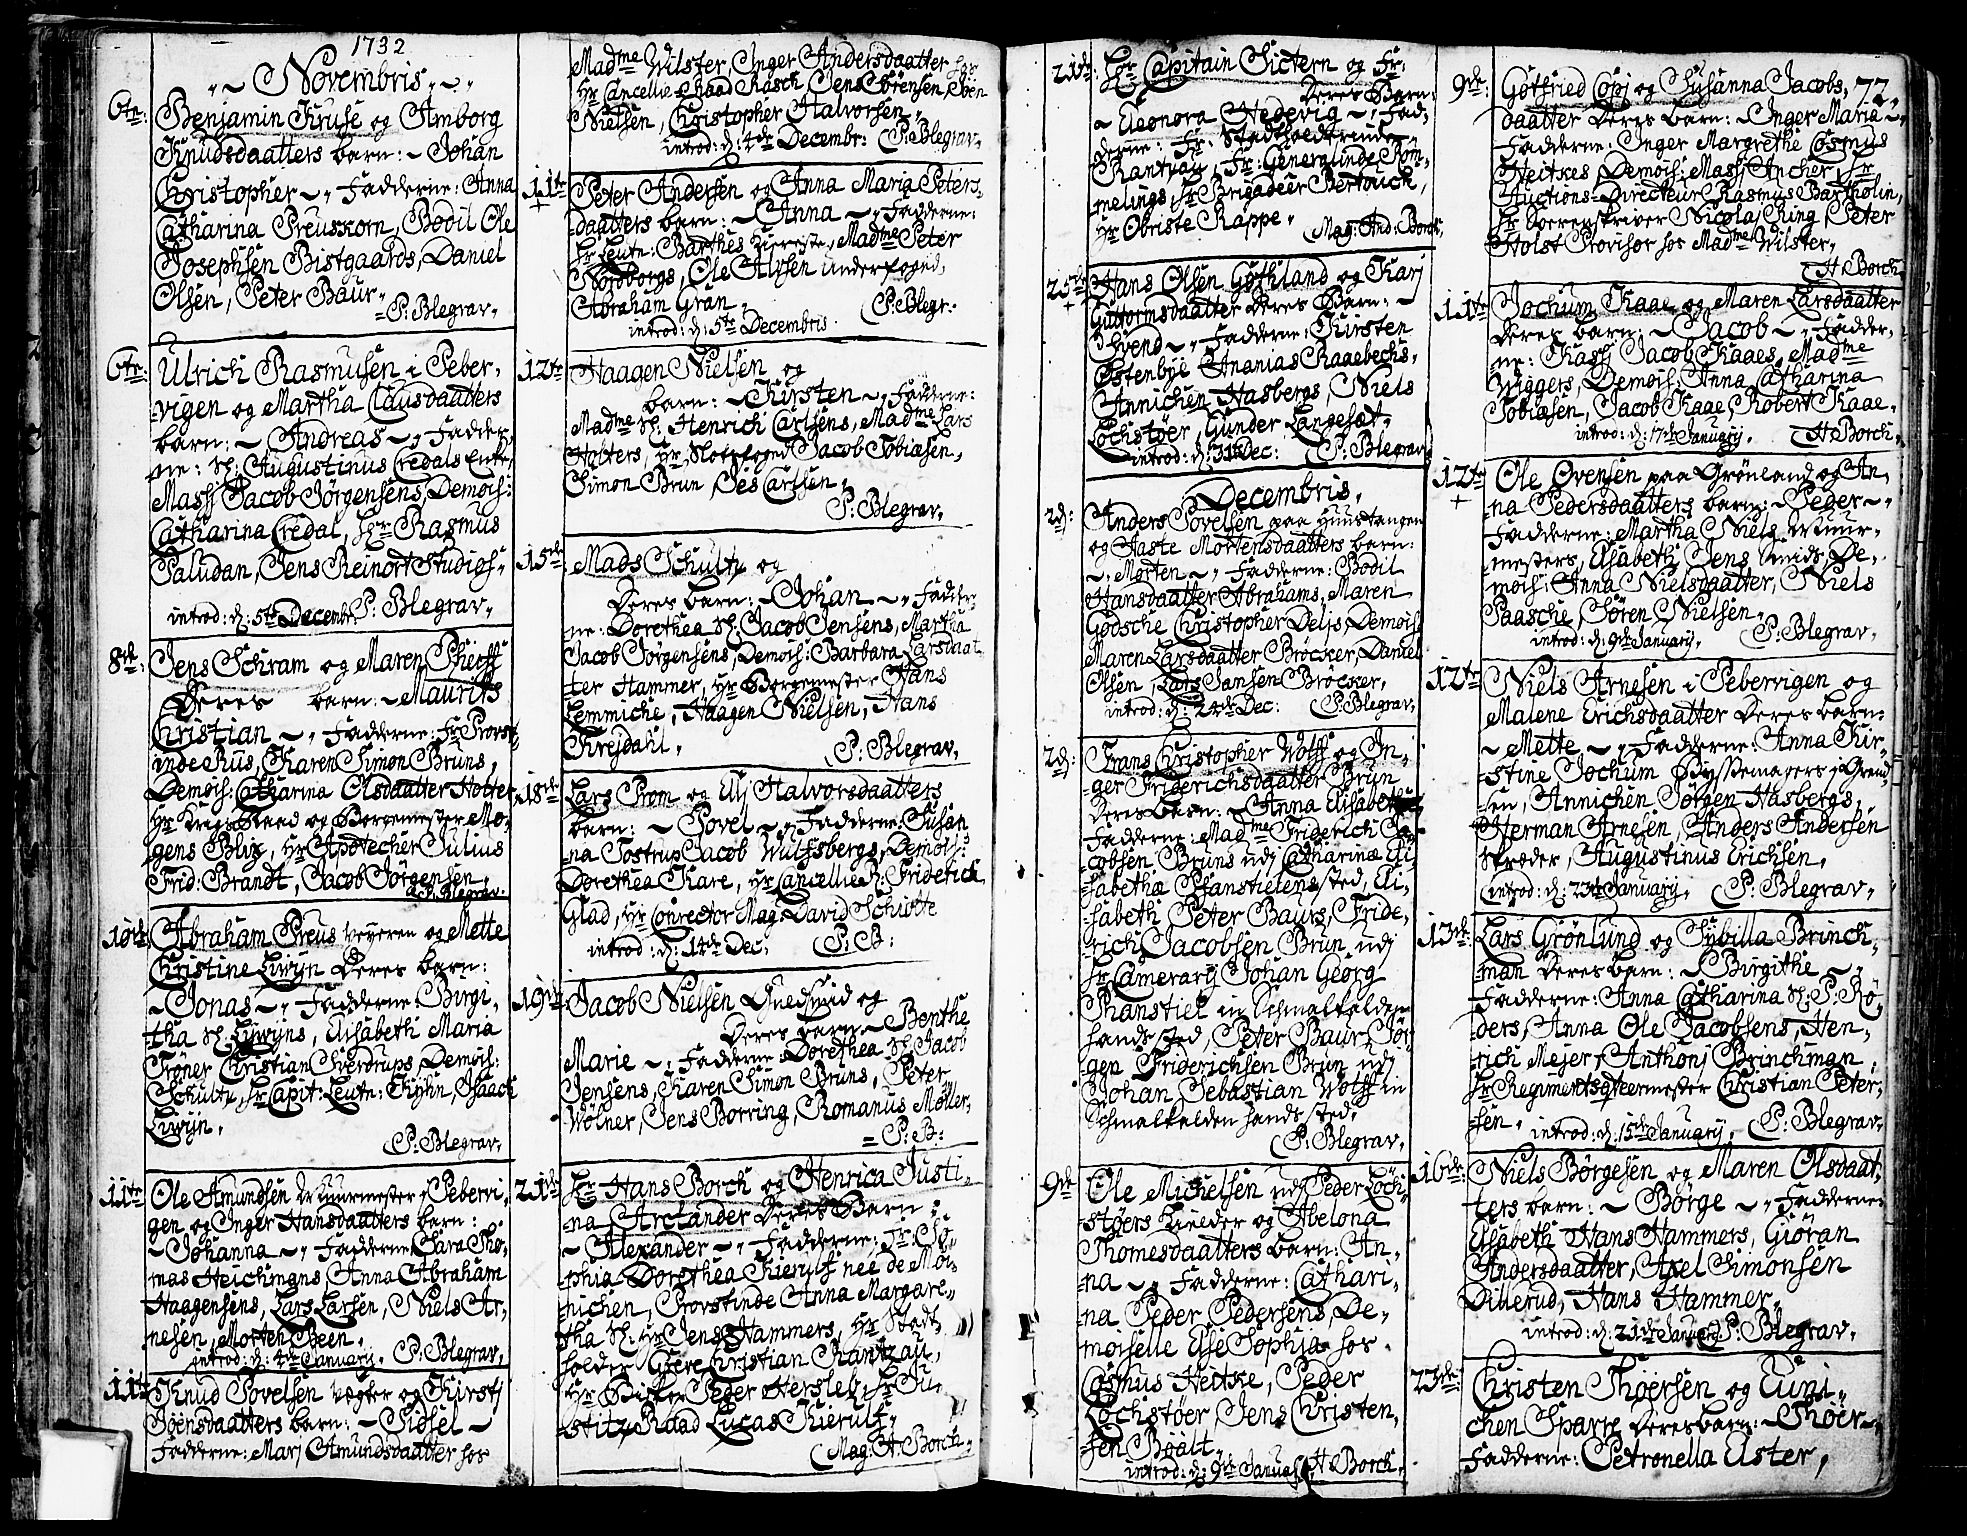 1732
Novembris
6te: Benjamin Kruse og Amborg
Knudsdaatters barn: ~ Johan
Christopher ~, Fadderne: Anna
Catharina Preuskorn, Bodil Ole
Josephsen Bistgaards, Daniel
Olsen, Peter Baur,
P: Blegrav,
6te: Ulrich Rasmusen i Peber,
vigen og Martha Clausdaatters
barn: ~ Andreas ~, Fadder,
ne: Sl: Augustinus Credals Enke,
Mass Jacob Jörgensens, Demois:
Catharina Credal, Hr Rasmus
Paludan, Jens Reinort Studios:
introd: d: 5te Decembr: P: Blegrav,
8de: Jens Schram og Maren
Deres barn: ~ Maurits
Christian ~, Fadderne: Fr Provst,
inde Rus, Karen Simon Bruns,
Demois: Catharina Olsdaatter Holter
Hr KrigsRaad og Borgemester Mo,
gens Blix, Hr Apotecher Julius
Frid: Brandt, Jacob Jörgensen,
P: Blegrav.
10de Abraham Preus Veyeren og Mette
Christine Liwyn Deres barn:
~ Jonas ~, Fadderne: Birgi,
tha Sl: Liwyns, Elisabeth Maria
Fröner, Christian Sverdrups, Demois:
Schultz, Hr Capit: Leutn: Thyhn, Isaack
Liwyn,
P: Blegrav,
11te Ole Amundsen Muurmester, Pebervi,
gen og Inger Hansdaatters barn:
~ Johanna ~, Fadderne: Sara Tho,
mas Heichmans, Anna Abraham
Haagensens, Lars Larsen, Niels Ar,
nesen, Morten Steen,
introd: d: 4de January, P: Blegrav,
11te Knud Povelsen Vegter og Kirstj
Joensdaatters barn: ~ Sidsel ~
Fadderne: Marj Amundsdaatter hos
Madme Wilster, Inger Andersdaatter hos
Hr Cancellie-Raad Rasch, Jens Sörensen, Sven
Nielsen, Christopher Halvorsen,
introd: d: 4de Decembr: P: Blegrav,
11te
+
Peter Andersen og Anna Maria Peters,
daatters barn: ~ Anna ~, Fadderne:
Hr Leutn: Barthes Kiereste, Madme Peter
Nordborgs, Ole Alysen underfoged,
Abraham Grän,
introd: d: 5te Decembris. P: Blegr:
12te Haagen Nielsen og
barn: ~ Kirsten ~, Fadderne:
Madme Sl: Henrich Carlsens, Madme Lars
Holters, Hr Slotsfoged Jacob Tobiæsen,
Simon Brun, Jes Carlsen,
P: Blegrav,
15de: Mads Schultz og
Deres barn: ~ Johan ~, Fadder,
ne: Dorethea Sl: Jacob Jensens, Martha
Jacob Jörgensens, Demois: Barbara Larsdaat
ter Hammer, Hr Borgemester Hans
Lemmiche, Haagen Nielsen, Hans
Krejdahl,
P: Blegrav,
18de Lars Prom og Elj Halvorsdaatters
barn: ~ Povel ~, Fadderne: Susan
na Tostrup Jacob Wulfsbergs, Demois:
Dorethea Kare, Hr Cancellie R: Friderich
Glad, Hr Conrector Mag: David Schiötte
introd: d: 14de Dec: P: B:
19de Jacob Nielsen Quedfeid og
Deres barn: ~ Benthe
Marie ~, Fadderne: Dorethea Sl: Jacob
Jensens, Karen Simon Bruns, Peter
Wölner, Jens Borring, Romanus Möller,
P: B:
21de: Hr Hans Borch og Henrica Justi,
na Arctander Deres Barn:
~ Alexander ~, Fadderne: Fr: So,
phia Dorethea Kierulf née de Moi
nichen, Provstinde Anna Margare,
tha Sl: Hr Jens Hammers, Hr Stadt,
holder Greve Christian Rantzau,
Hr Biskop Peder Hersleb, Hr Ju,
stitz-Raad Lucas Kierulf,
Mag: H: Borch,
21de: Hr Capitain Sictern og Fr:
Deres Barn:
~ Eleonora Hedevig ~, Fad,
derne: Fr: Stadtholderinde
Rantzau, Fr: Generalinde Rom,
melings, Hr Brigadeur Bertouch,
Hr Obriste Rappe, Mag: And: Borch,
25de
+
Hans Olsen Gothland og Karj
Guttormsdaatter Deres Barn: ~
Svend ~, Fadderne: Kirsten
Östenbye Ananias Raaebechs,
Annichen Hasbergs, Niels
Lochstöer, Gunder Langesæt,
introd: d: 31te Dec: P: Blegrav,
Decembris,
2d: Anders Povelsen paa Huustangen
og Aaste Mortensdaatters barn:
~ Morten ~, Fadderne: Bodil
Hansdaatter Abrahams, Maren
Godsche Christopher Deljs, Demois:
Maren Larsdaatter Bröcker, Daniel
Olsen, Lars Jansen Bröcker,
introd: d: 24de Dec: P: Blegrav,
2d: Frans Christopher Wolff og In,
ger Friderichsdaatter Brun
Deres barn: ~ Anna Elisabeth
Fadderne: Madme Friderich Ja,
cobsen Bruns udj Catharinæ Eli,
sabethæ Pfanstielens sted, Eli,
sabeth Peter Baurs, Fride,
rich Jacobsen Brun udj
Hr Camerarij Johan Georg
Phanstiel in Schmalkalden
hands sted, Peter Baur, Jör,
gen Friderichsen Brun udj
Johan Sebastian Wolff in
Schmalkalden hands sted,
P: Blegrav,
9de Ole Michelsen udj Peder Loch,
stöers Kielder og Abelona
Thomesdaatters barn: An,
na ~, Fadderne: Cathari,
na Peder Pedersens, De,
moiselle Else Sophia hos
Cosmus Heitske, Peder
Lochstöer, Jens Christen,
sen Böält,
introd: d: 9de Januar, H: Borch,
72.
9de: Gotfried Copj og Susanna Jacobs,
daatter Deres barn: ~ Inger Maria ~,
Fadderne: Inger Margrethe Cosmus
Heitskes, Demois: Mass Ancher, Hr
Auctions-Directeur Rasmus Bartholin,
Hr Sorenskriver Nicolaj Ring, Peter
Holst Provisor hos Madme Wilster,
H: Borch,
11te Jochum Kaae og Maren Larsdaatter
Deres barn: ~ Jacob ~, Fadder,
ne: Jacob Kaaes, Madme
Wiggers, Demois: Anna Catharina
Tobiæsen, Jacob Kaae, Robert Kaae,
introd: d: 17de January, H: Borch,
12te
+
Ole Ovensen paa Grönland og An,
na Pedersdaatters barn: ~ Peder ~,
Fadderne: Martha Niels Muur,
mesters, Elsabeth Jens Smids, De,
mois: Anna Nielsdaatter, Niels
Paasche, Sören Nielsen,
introd: d: 9de January, P: Blegrav,
12te Niels Arnesen i Pebervigen og
Malene Erichsdaatter Deres barn:
~ Mette ~, Fadderne: Anna Kir,
stine Jochum Bössemagers, Grend
sen, Annichen Jörgen Hasbergs,
Herman Arnesen, Anders Andersen
Skreder, Augustinus Erichsen,
introd: d: 23de January, P: Blegrav,
13de: Lars Grönlund og Sybilla Brinch,
man Deres barn: ~ Birgithe ~,
Fadderne: Anna Catharina Sl: P: Rö,
ders, Anna Ole Jacobsens, Hen,
rich Mejer, Anthonj Brinchman,
Hr Regimentsqteermester Christian Peter,
sen, introd: d: 15de January, P: Blegrav,
16de: Niels Börgesen og Maren Olsdaat,
ters barn: ~ Börge ~, Fadderne:
Elsabeth Hans Hammers, Giöran
Andersdaatter, Axel Simonsen
Dillerud, Hans Hammer,
introd: d: 21de January, P: Blegrav,
23de: Christen Thöersen og Euni,
chen Sparre Deres barn: ~ Thöer ~,
Fadderne: Petronella Elster,